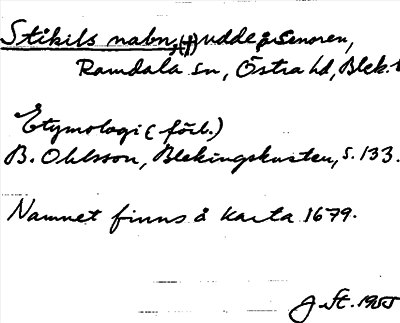 Stikils nabn, (†) udde å Senoren,
Ramdala sn, Östra hd, Blek. l
Etymologi (förl.)
B. Ohlsson, Blekingskusten, s. 133.
Namnet finns å karta 1679.
J. St. 1955